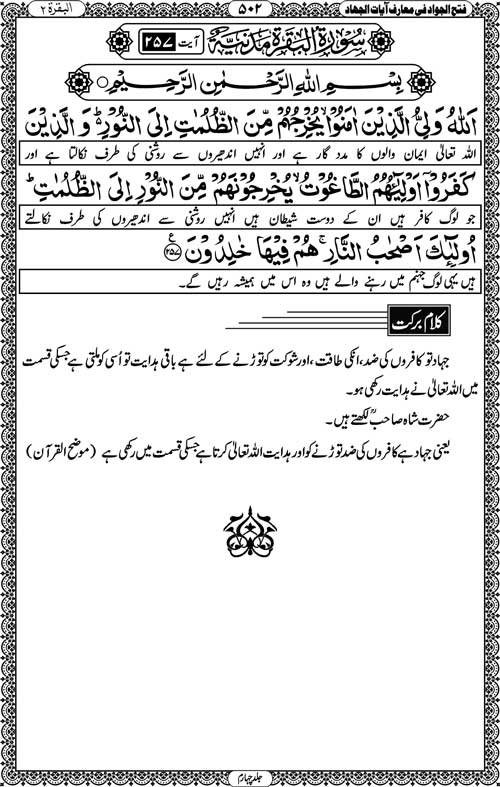 فتح الجواد فی معارف آیات الجهاد ۵۰۲ البقرة ۲
سُوْرَةُ الْبَقَرَةِ مَدَنِيَّةٌ آیت ۲۵۷
بِسْمِ اللهِ الرَّحْمٰنِ الرَّحِيْمِ
اَللهُ وَلِيُّ الَّذِيْنَ اٰمَنُوْا يُخْرِجُهُمْ مِّنَ الظُّلُمٰتِ اِلَى النُّوْرِ ؕ وَ الَّذِيْنَ
اللہ تعالیٰ ایمان والوں کا مدد گار ہے اور انہیں اندھیروں سے روشنی کی طرف نکالتا ہے اور
كَفَرُوْۤا اَوْلِيٰٓـُٔهُمُ الطَّاغُوْتُ يُخْرِجُوْنَهُمْ مِّنَ النُّوْرِ اِلَى الظُّلُمٰتِ ؕ
جو لوگ کافر ہیں ان کے دوست شیطان ہیں انہیں روشنی سے اندھیروں کی طرف نکالتے
اُولٰٓئِكَ اَصْحٰبُ النَّارِ ۚ هُمْ فِيْهَا خٰلِدُوْنَ ﴿۲۵۷﴾ ع
ہیں یہی لوگ جہنم میں رہنے والے ہیں وہ اس میں ہمیشہ رہیں گے۔
کلام برکت
جہاد تو کافروں کی ضد، انکی طاقت، اور شوکت کو توڑنے کے لئے ہے باقی ہدایت تو اُسی کو ملتی ہے جسکی قسمت
میں اللہ تعالیٰ نے ہدایت رکھی ہو۔
حضرت شاہ صاحبؒ لکھتے ہیں۔
یعنی جہاد ہے کافروں کی ضد توڑنے کو اور ہدایت اللہ تعالیٰ کرتا ہے جسکی قسمت میں رکھی ہے (موضح القرآن)
جلد چہارم